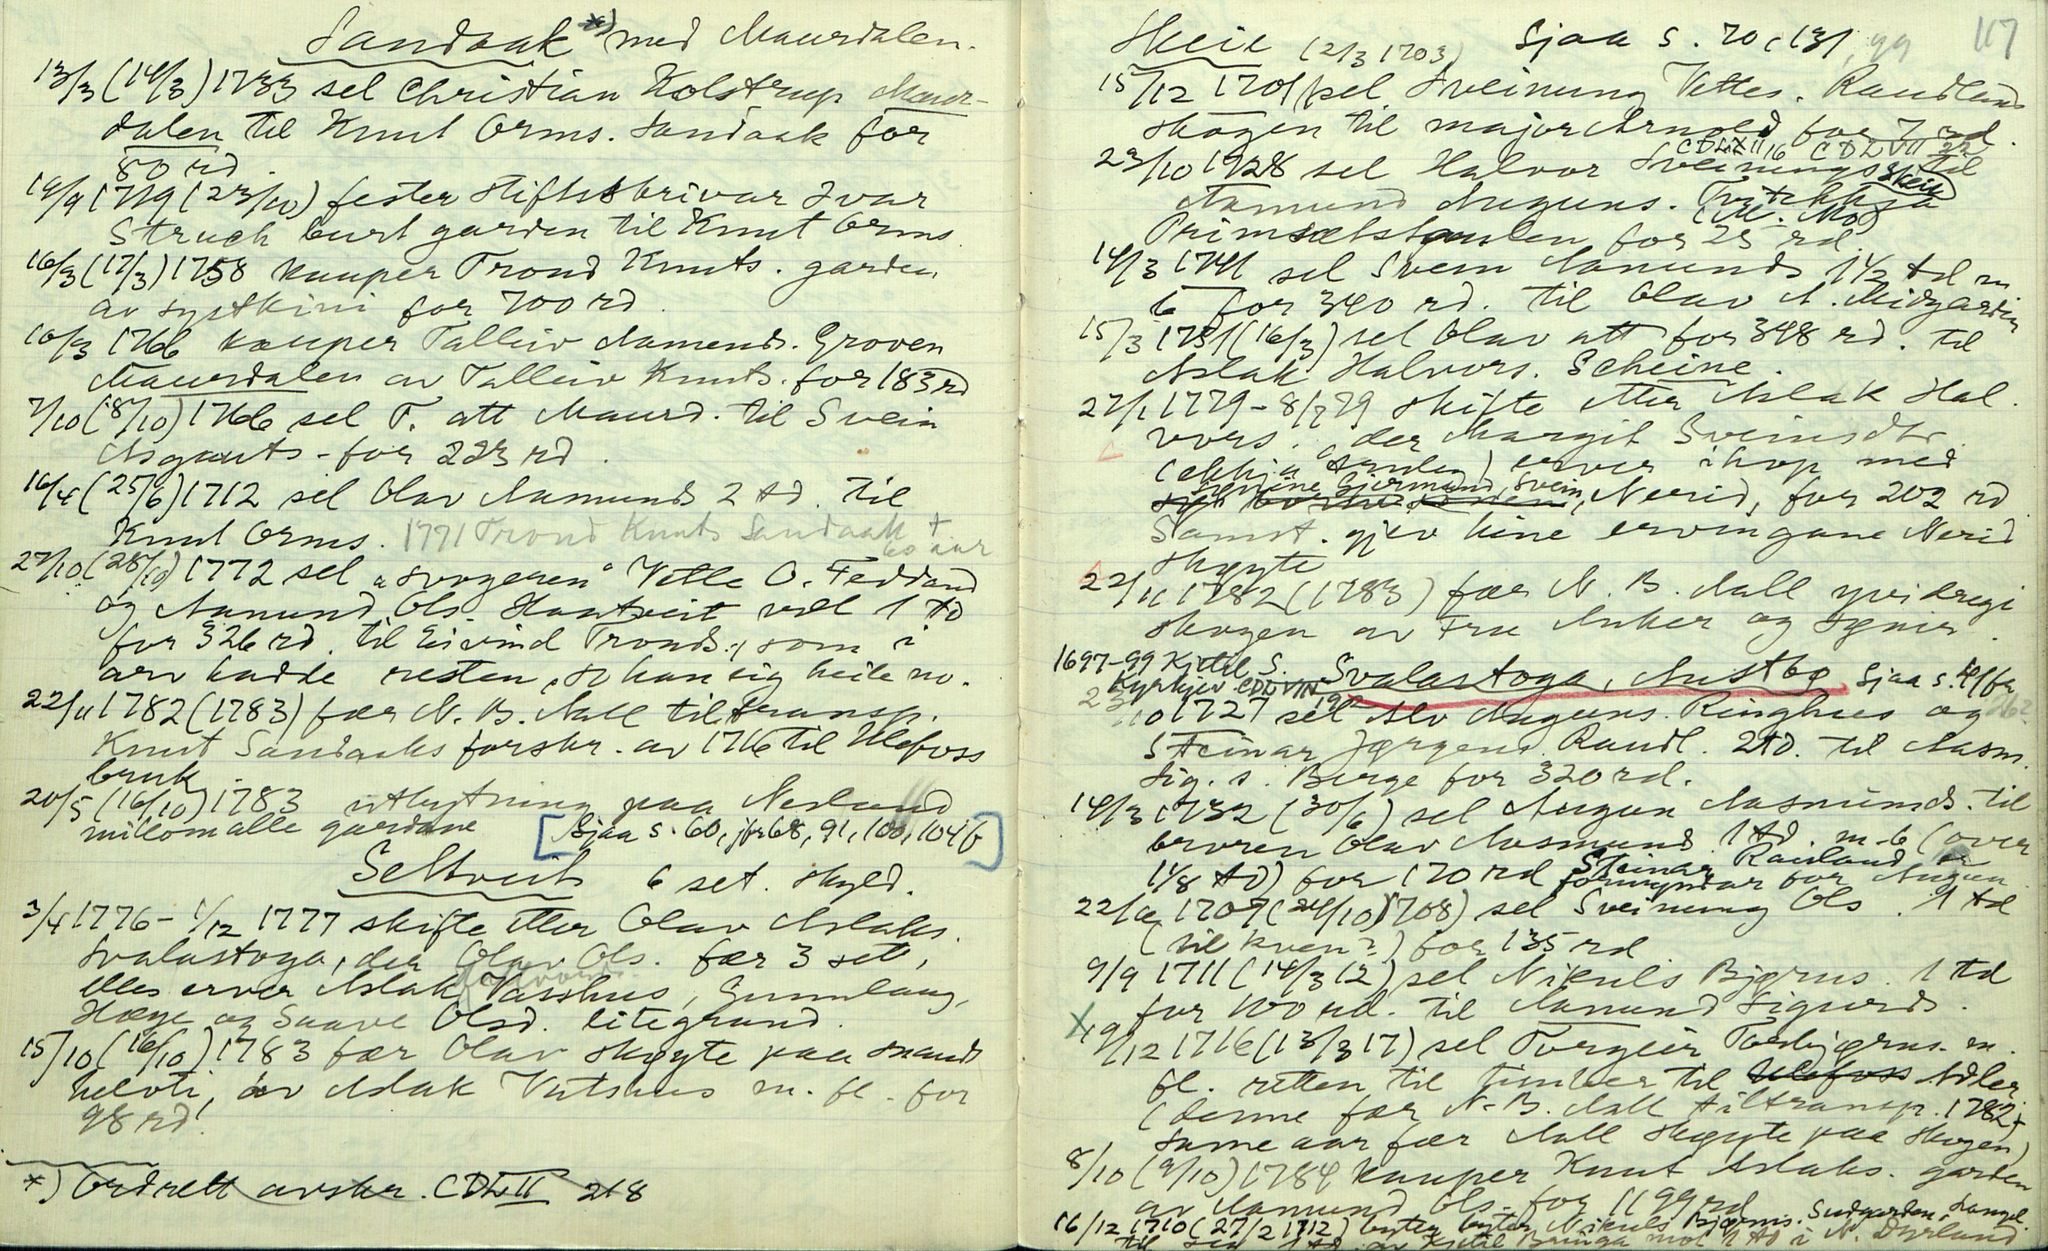 Sandaak *) med Maurdalen.
13/3 (14/3) 1733 sel Christian Kolstrup Maur-
dalen til Knut Orms. Sandaak for
80 rd.
19/9 1719 (23/10) fester stiftsskrivar Ivar
Struch burt garden til Knut Orms.
16/3 (17/3) 1758 kauper Trond Knuts. garden
av systkini for 700 rd
10/3 1766 kauper Talleiv Aamunds. Groven
Maurdalen av Talleiv Knuts. for 183 rd
7/10 (8/10) 1766 sel T. att Maurd. til Svein
Asgauts. for 223 rd.
16/4 (25/6) 1712 sel Olav Aamunds 2 td. til
Knut Orms. 1791 Trond Knuts Sandaak +
60 aar
27/10 (28/10) 1772 sel "svogeren" Vetle O. Feddand
og Aamund Ols. Haatveit vel 1 td
for 326 rd. til Eivind Tronds., som i
arv hadde resten, so han eig heile no.
22/11 1782 (1783) fær N. B. Aall tiltransp.
Knut Sandaaks forskr. av 1716 til Ulefoss
bruk
20/5 (16/10) 1783 utbytning paa Nesland
millom alle gardane [Sjaa s. 60, jfr 68, 91, 100, 104 b]
Seltveit 6 set. skyld.
3/4 1776 - 1/12 1777 skifte etter Olav Aslaks.
Svalastoga, der Olav Ols. fær 3 set.,
elles erver Aslak Vasshus, Gunnlaug,
Hæge og Saave Olsd. litegrand.
15/10 (16/10) 1783 fær Olav skøyte paa
helvti, av Aslak Vatshus m. fl. for
98 rd.
*) Ordrett avskr. CDL II 218
Skeie (2/3 1703) Sjaa s. 70, 131, 99 117
15/12 1701 sel Sveinung Vetles. Raudlands
skogen til major Arnold for 7 rd.
CDL XII 16 CDL VII 22
23/10 1728 sel Halvor Sveinungs. Skeie til
Aamund Auguns. Tveitekkja
(M. Mo)
Primsetstaulen for 25 rd.
14/3 1741 sel Svein Aamunds 1 1/2 td m
6 for 340 rd. til Olav A. Midgarden
15/3 1751 (16/3) sel Olav att for 348 rd. til
Aslak Halvors. Scheine.
27/1 1779 - 8/ 79 skifte etter Aslak Hal-
vors. der Margit Sveinsdtr.
(ekkja) erver ihop med
Gjermund, Svein, Neerid, for 202 rd
Samst. gjev hine ervingane Nerid
skøyte
22/11 1782 (1783) fær N. B. Aall yvidregi
skogen av Fru Anker og Søner.
1697-99 Kjetil S. Svalastoga, Austbø Sjaa s. 41 fr
Kyrkjev. CDL VIII 192 262
23/10 1727 sel Alv Auguns. Ringhus og
Steinar Jørgens. Raudl. 2 td. til Aasm.
Sig. s. Berge for 320 rd.
14/3 1732 (30/6) sel Augun Aasmunds. til
broren Olav Aasmund. 1 td. m-6 (over
1 1/8 td) for 170 rd Steinar Rauland er
formyndar for Augun.
22/ 1707 (24/10 1708) sel Sveinung Ols. 1 td
(til kven?) for 135 rd
9/9 1711 (14/3 12) sel Nikuls Bjørns. 1 td
for 100 rd. til Aamund Sigurds.
X 19/12 1716 (13/3 17) sel Torgeir Torbjørns. m.
fl. retten til timber til Ulefoss Adler
(denne fær N. B. Aall tiltransp. 1782 +
same aar fær Aall skøyte paa skogen)
8/10 (9/10) 1784 kauper Knut Aslaks. garden
av Aamund Ols. for 1199 rd
16/12 1710 (27/2 1712) byter Nikuls Bjørns. Sudgarden
til seg 1 td. av Kjetil Bringa mot 1 td i N. Dyrland